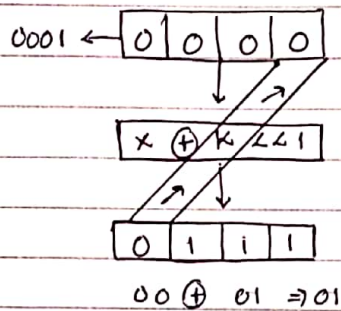 0001 ← 0 0 0 0
x ⊕ k <<1
0 1 1 1
00 ⊕ 01 ⇒ 01